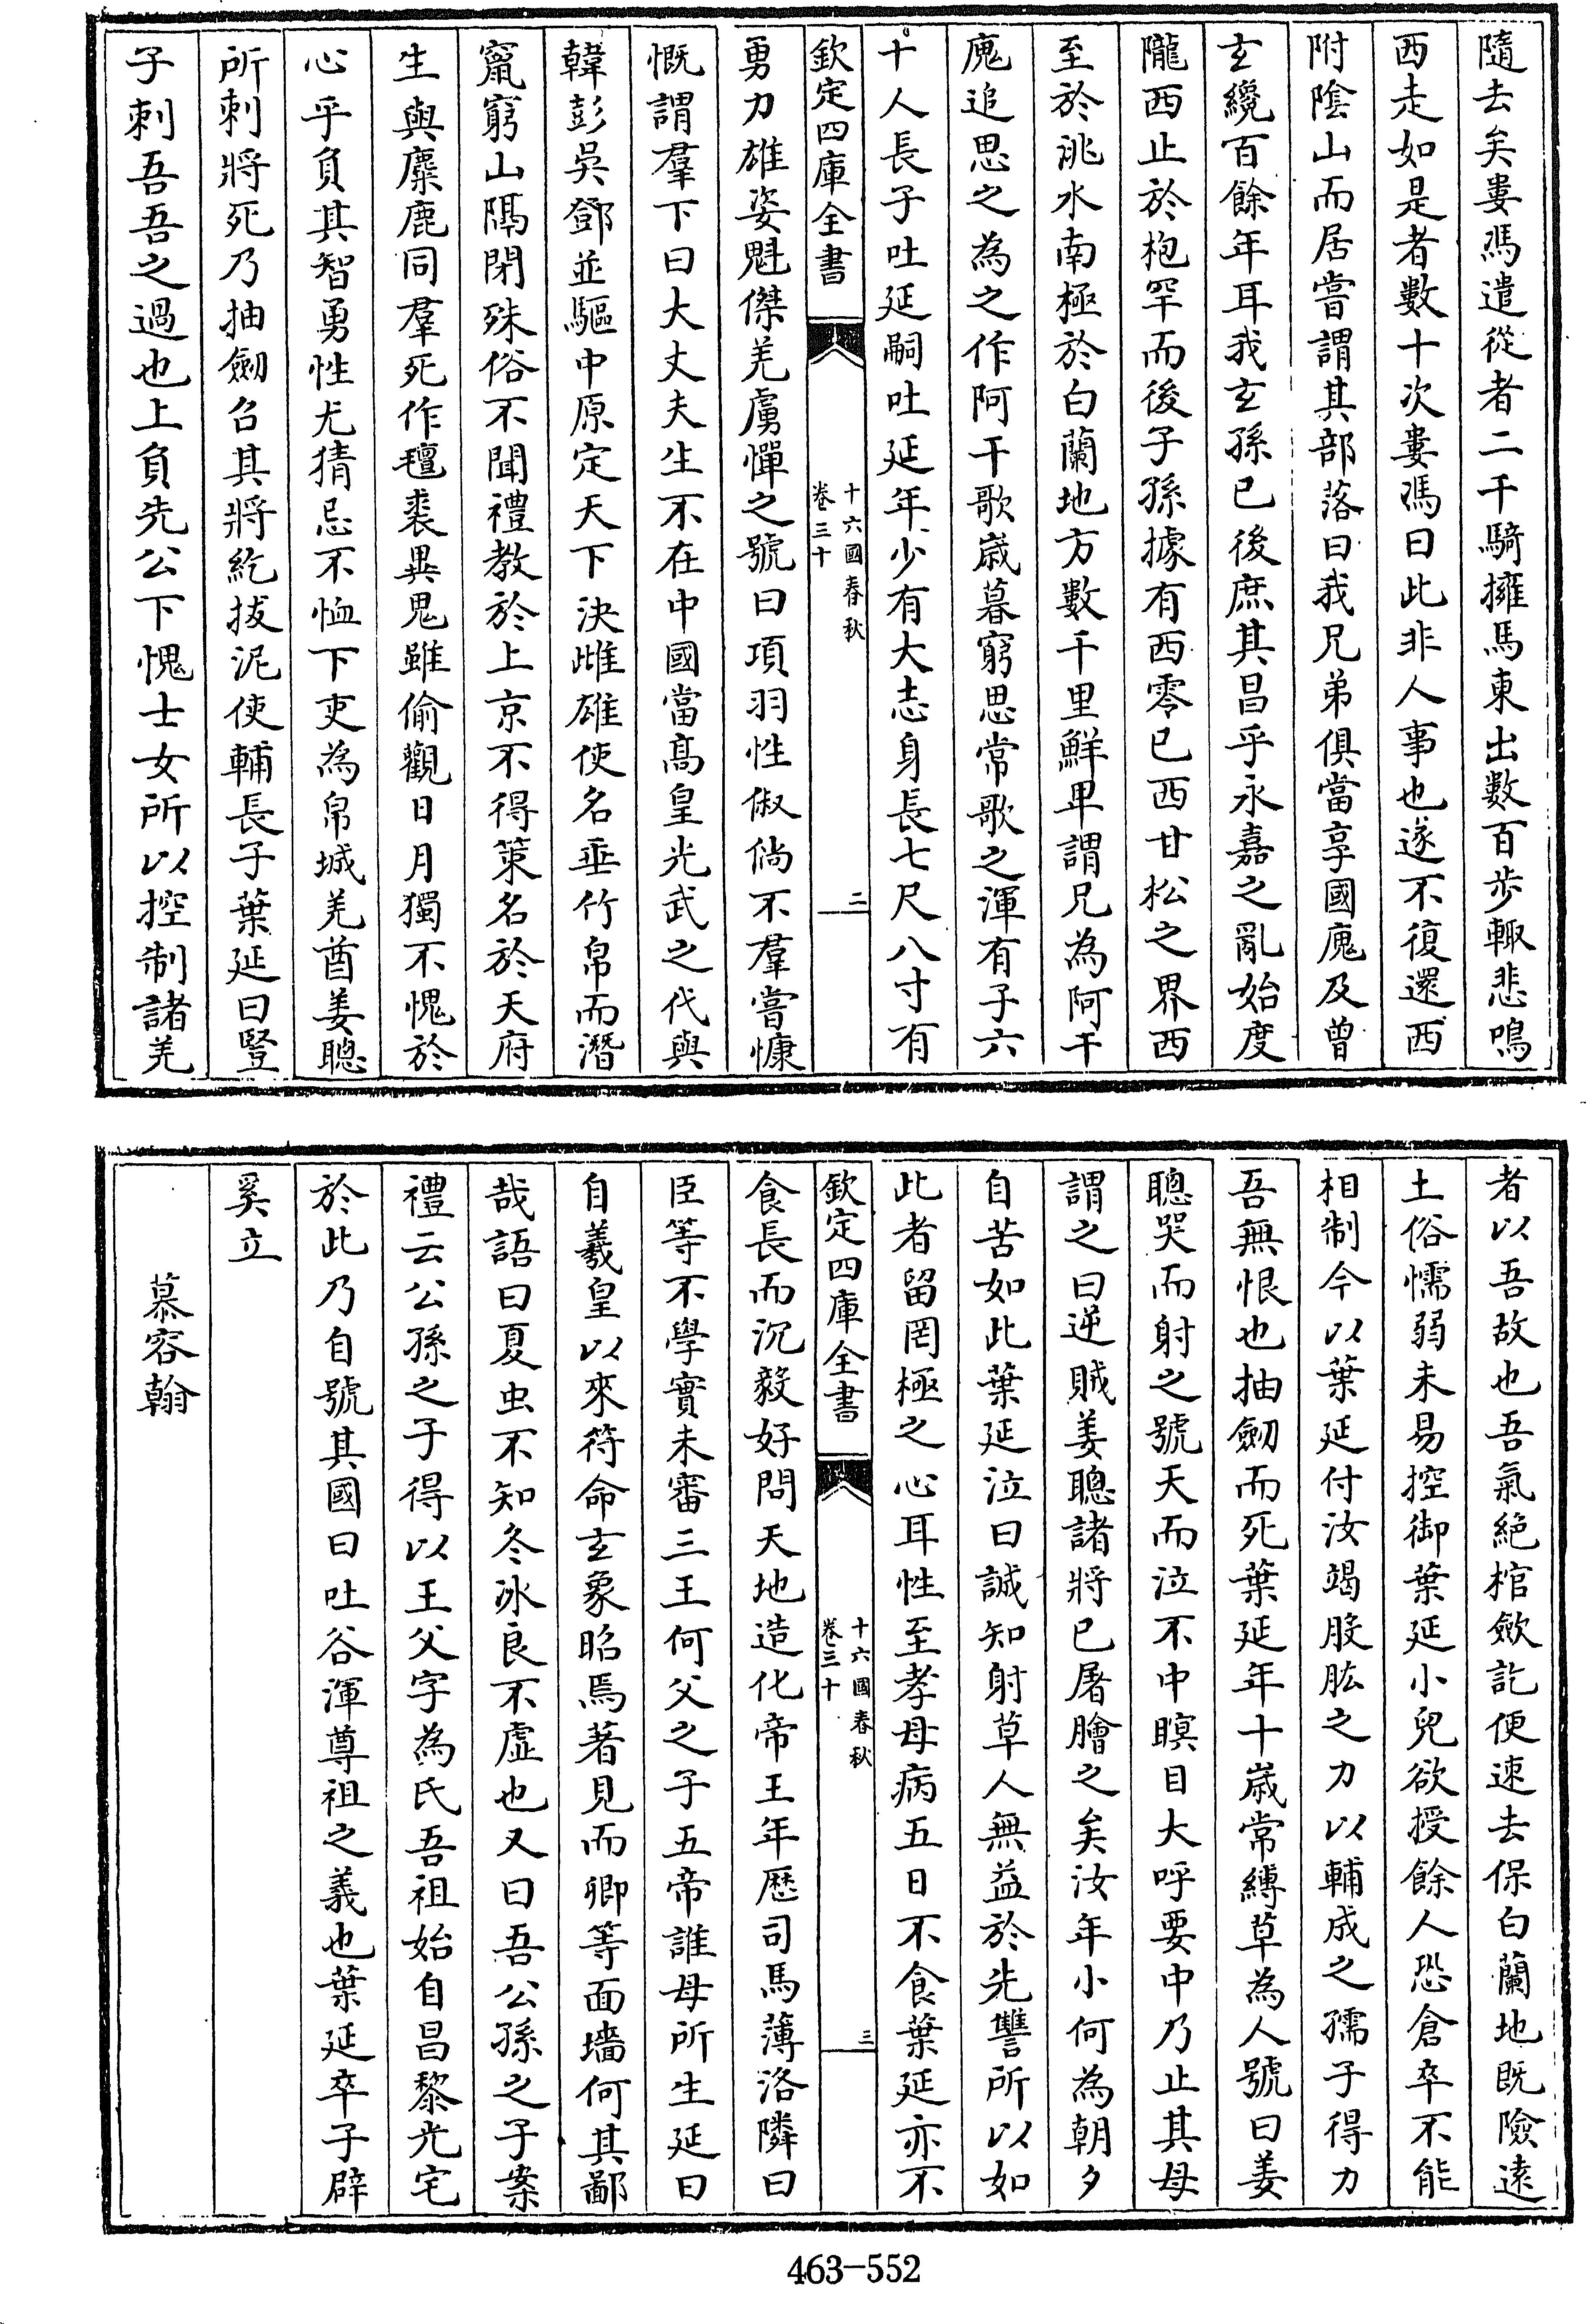 隨去矣婁馮遣從者二千騎擁馬東出數百步輙悲鳴
西走如是者數十次婁馮曰此非人事也遂不復還西
附陰山而居嘗謂其部落曰我兄弟俱當享國廆及曾
玄纔百餘年耳我玄孫已後庶其昌乎永嘉之亂始度
隴西止於枹罕而後子孫據有西零已西甘松之界西
至於洮水南極於白蘭地方數千里鮮卑謂兄為阿干
廆追思之為之作阿干歌歳暮窮思常歌之渾有子六
十人長子吐延嗣吐延年少有大志身長七尺八寸有
欽定四庫全書
十六國春秋
卷三十
二
勇力雄姿魁傑羌虜憚之號曰項羽性俶倘不羣嘗慷
慨謂羣下曰大丈夫生不在中國當高皇光武之代與
韓彭吳鄧並驅中原定天下決雌雄使名垂竹帛而潛
竄窮山隔閉殊俗不聞禮教於上京不得策名於天府
生與麋鹿同羣死作氊裘異鬼雖偷觀日月獨不愧於
心乎負其智勇性尤猜忌不恤下吏為帛城羌酋姜聰
所刺將死乃抽劒召其將紇拔泥使輔長子葉延曰豎
子刺吾吾之過也上負先公下愧士女所以控制諸羌
者以吾故也吾氣絶棺斂訖便速去保白蘭地既險遠
土俗懦弱未易控御葉延小兒欲授餘人恐倉卒不能
相制今以葉延付汝竭股肱之力以輔成之孺子得力
吾無恨也抽劒而死葉延年十歳常縛草為人號曰姜
聰哭而射之號天而泣不中瞑目大呼要中乃止其母
謂之曰逆賊姜聰諸將已屠膾之矣汝年小何為朝夕
自苦如此葉延泣曰誠知射草人無益於先讐所以如
此者留罔極之心耳性至孝母病五日不食葉延亦不
欽定四庫全書
十六國春秋
卷三十
三
食長而沉毅好問天地造化帝王年歷司馬薄洛隣曰
臣等不學實未審三王何父之子五帝誰母所生延曰
自羲皇以來符命玄象昭焉著見而卿等面墻何其鄙
哉語曰夏虫不知冬冰良不虛也又曰吾公孫之子案
禮云公孫之子得以王父字為氏吾祖始自昌黎光宅
於此乃自號其國曰吐谷渾尊祖之義也葉延卒子辟
奚立
慕容翰
463-552